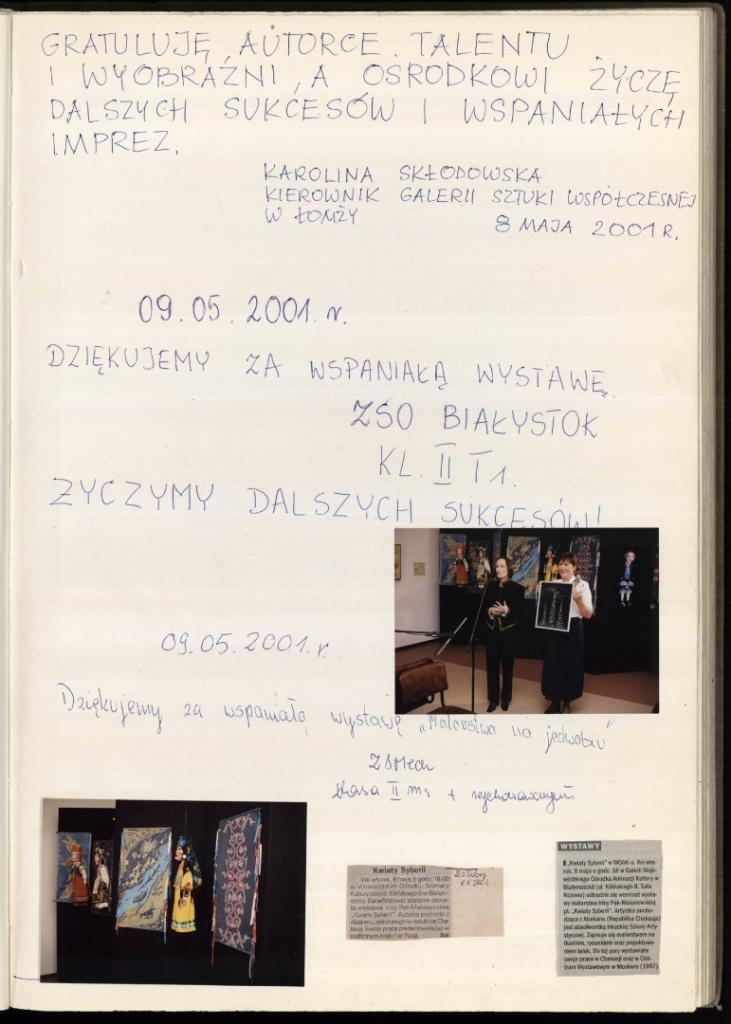 GRATULUJĘ AUTORCE TALENTU
I WYOBRAŹNI, A OŚRODKOWI ŻYCZĘ
DALSZYCH SUKCESÓW I WSPANIAŁYCH
IMPREZ.
KAROLINA SKŁODOWSKA
KIEROWNIK GALERII SZTUKI WSPÓŁCZESNEJ
W ŁOMŻY
8 MAJA 2001 R.
09.05.2001. r.
DZIĘKUJEMY ZA WSPANIAŁĄ WYSTAWĘ
ZSO BIAŁYSTOK
KL. II T1.
ŻYCZYMY DALSZYCH SUKCESÓW!
09.05.2001.r
Dziękujemy za wspaniałą wystawę „Malarstwa na jedwabiu"
klasa II
Kwiaty Syberii
We wtorek, 8 maja, o godz. 18.00
w Wojewódzkim Ośrodku Animacji
Kultury
wystawa Iny Pak-Makalewskiej
„Kwiaty Syberii". Autorka pochodzi z
WYSTAWY
„Kwiaty Syberii" w WOAK-u. We wto-
rek, 8 maja o godz. 18 w Galerii Woje-
wódzkiego Ośrodka Animacji Kultury w
Białymstoku (ul. Kilińskiego 8, Sala
Różowa) odbędzie się wernisaż wysta-
wy malarstwa
pt. „Kwiaty Syberii". Artystka pocho-
dząca z Abakanu (Republika Chakasja)
jest absolwentką Irkuckiej Szkoły Arty-
stycznej. Zajmuje się malarstwem na
tkaninie, rysunkiem oraz projektowa-
niem lalek. Do tej pory wystawiała
swoje prace w Chakasji oraz w Cen-
trum Wystawowym w Moskwie (1997).